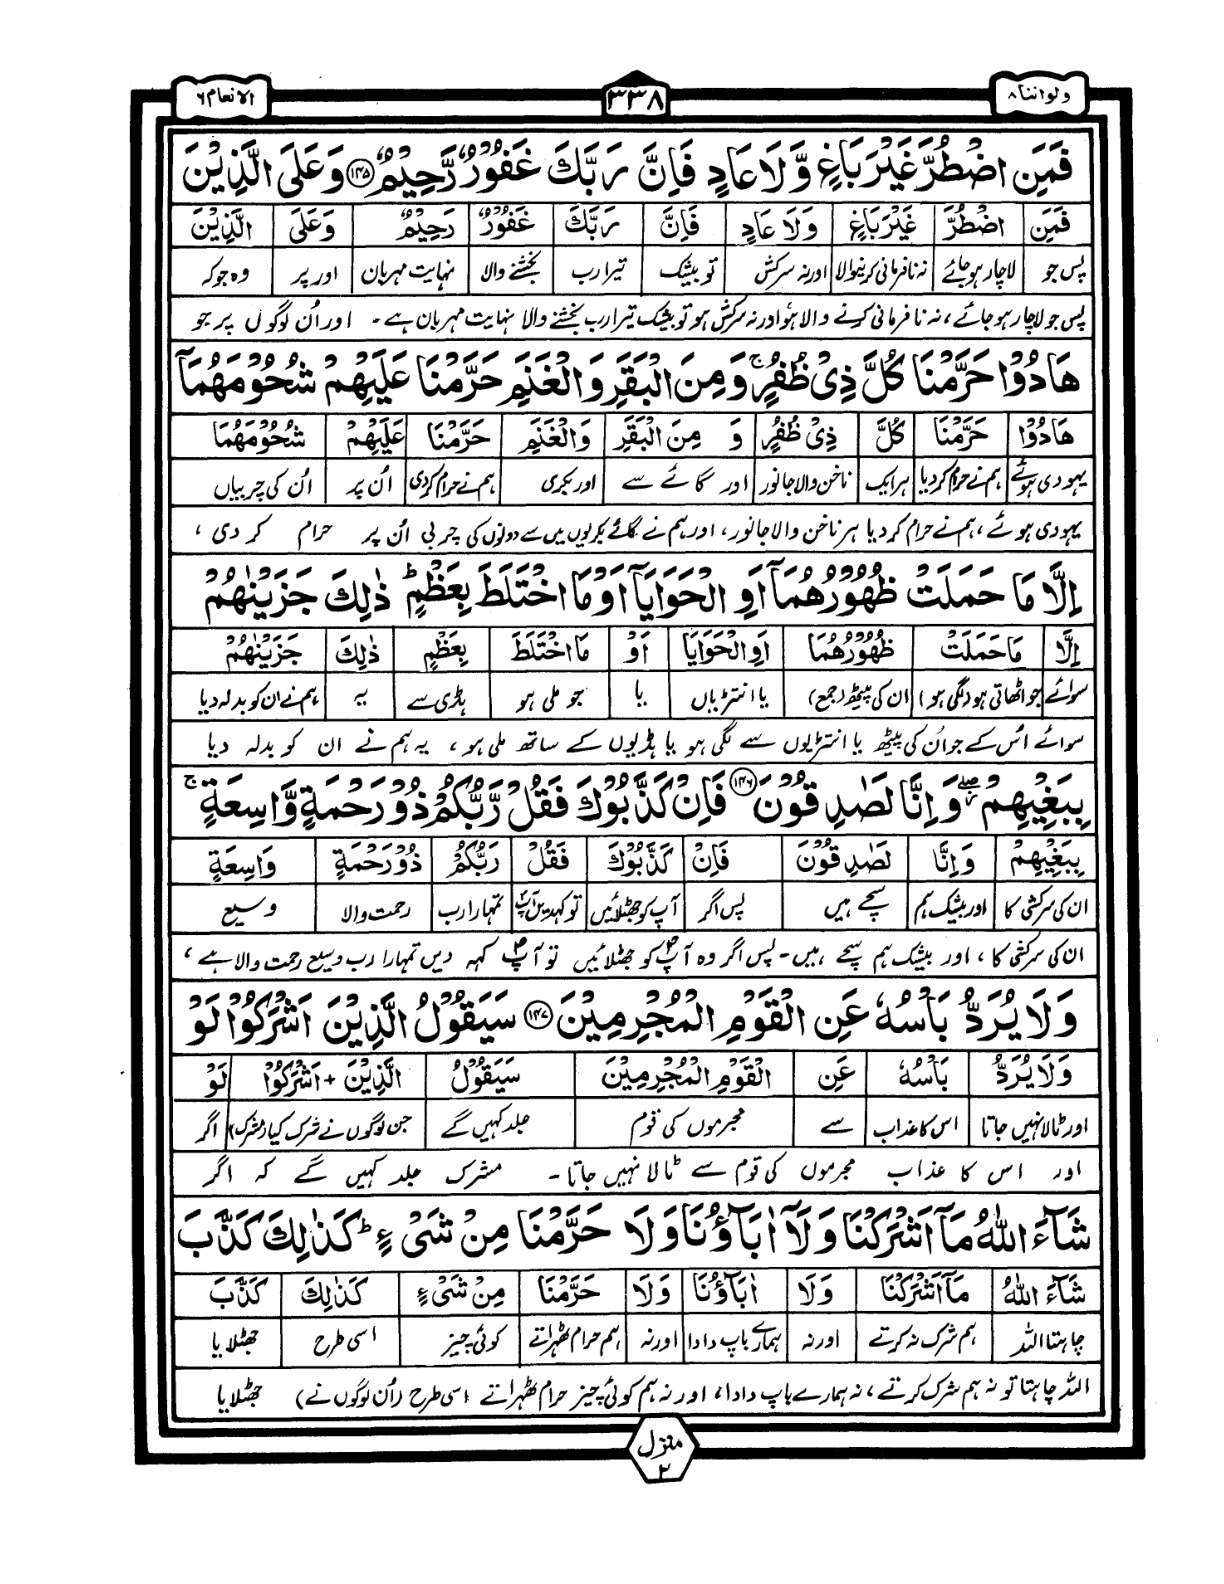 ولواننا ۸
۳۳۸
الانعام ۶
فَمَنِ اضْطُرَّ غَيْرَ بَاغٍ وَّلَا عَادٍ فَاِنَّ رَبَّكَ غَفُوْرٌ رَّحِيْمٌ ۱۴۵ وَعَلَى الَّذِيْنَ
فَمَنِ اضْطُرَّ غَيْرَ بَاغٍ وَلَا عَادٍ فَاِنَّ رَبَّكَ غَفُوْرٌ رَحِيْمٌ وَعَلَى الَّذِيْنَ
پس جو لاچار ہوجائے نہ نافرمانی کرنیوالا اور نہ سرکش تو بیشک تیرا رب بخشنے والا نہایت مہربان اور پر وہ جو کہ
پس جو لاچار ہوجائے، نہ نافرمانی کرنے والا ہو اور نہ سرکش ہو تو بیشک تیرا رب بخشنے والا نہایت مہربان ہے۔ اور اُن لوگوں پر جو
هَادُوْا حَرَّمْنَا كُلَّ ذِيْ ظُفُرٍ ۚ وَمِنَ الْبَقَرِ وَالْغَنَمِ حَرَّمْنَا عَلَيْهِمْ شُحُوْمَهُمَآ
هَادُوْا حَرَّمْنَا كُلَّ ذِيْ ظُفُرٍ وَ مِنَ الْبَقَرِ وَالْغَنَمِ حَرَّمْنَا عَلَيْهِمْ شُحُوْمَهُمَا
یہودی ہوئے ہم نے حرام کردیا ہر ایک ناخن والا جانور اور گائے سے اور بکری ہم نے حرام کردی اُن پر اُن کی چربیاں
یہودی ہوئے، ہم نے حرام کر دیا ہر ناخن والا جانور، اور ہم نے گائے بکریوں میں سے دونوں کی چربی اُن پر حرام کر دی،
اِلَّا مَا حَمَلَتْ ظُهُوْرُهُمَآ اَوِ الْحَوَايَآ اَوْ مَا اخْتَلَطَ بِعَظْمٍ ؕ ذٰلِكَ جَزَيْنٰهُمْ
اِلَّا مَا حَمَلَتْ ظُهُوْرُهُمَا اَوِ الْحَوَايَا اَوْ مَا اخْتَلَطَ بِعَظْمٍ ذٰلِكَ جَزَيْنٰهُمْ
سوائے جو اٹھاتی ہو (لگی ہو) ان کی پیٹھ (جمع) یا انتڑیاں یا جو ملی ہو ہڈی سے یہ ہم نے ان کو بدلہ دیا
سوائے اُس کے جو اُن کی پیٹھ یا انتڑیوں سے لگی ہو یا ہڈیوں کے ساتھ ملی ہو، یہ ہم نے ان کو بدلہ دیا
بِبَغْيِهِمْ ۖ وَاِنَّا لَصٰدِقُوْنَ ۱۴۶ فَاِنْ كَذَّبُوْكَ فَقُلْ رَّبُّكُمْ ذُوْ رَحْمَةٍ وَّاسِعَةٍ ۚ
بِبَغْيِهِمْ وَاِنَّا لَصٰدِقُوْنَ فَاِنْ كَذَّبُوْكَ فَقُلْ رَبُّكُمْ ذُوْ رَحْمَةٍ وَاسِعَةٍ
ان کی سرکشی کا اور بیشک ہم سچے ہیں پس اگر آپ کو جھٹلائیں تو کہدیں آپ تمہارا رب رحمت والا وسیع
ان کی سرکشی کا، اور بیشک ہم سچے ہیں۔ پس اگر وہ آپؐ کو جھٹلائیں تو آپؐ کہہ دیں تمہارا رب وسیع رحمت والا ہے،
وَلَا يُرَدُّ بَاْسُهٗ عَنِ الْقَوْمِ الْمُجْرِمِيْنَ ۱۴۷ سَيَقُوْلُ الَّذِيْنَ اَشْرَكُوْا لَوْ
وَلَا يُرَدُّ بَاْسُهٗ عَنِ الْقَوْمِ الْمُجْرِمِيْنَ سَيَقُوْلُ الَّذِيْنَ + اَشْرَكُوْا لَوْ
اور ٹالا نہیں جاتا اس کا عذاب سے مجرموں کی قوم جلد کہیں گے جن لوگوں نے شرک کیا (مشرک) اگر
اور اس کا عذاب مجرموں کی قوم سے ٹالا نہیں جاتا۔ مشرک جلد کہیں گے کہ اگر
شَآءَ اللّٰهُ مَآ اَشْرَكْنَا وَلَآ اٰبَآؤُنَا وَلَا حَرَّمْنَا مِنْ شَيْءٍ ؕ كَذٰلِكَ كَذَّبَ
شَآءَ اللّٰهُ مَآ اَشْرَكْنَا وَلَا اٰبَآؤُنَا وَلَا حَرَّمْنَا مِنْ شَيْءٍ كَذٰلِكَ كَذَّبَ
چاہتا اللہ ہم شرک نہ کرتے اور نہ ہمارے باپ دادا اور نہ ہم حرام ٹھہراتے کوئی چیز اسی طرح جھٹلایا
اللہ چاہتا تو نہ ہم شرک کرتے، نہ ہمارے باپ دادا، اور نہ ہم کوئی چیز حرام ٹھہراتے اسی طرح (اُن لوگوں نے) جھٹلایا
منزل
۲